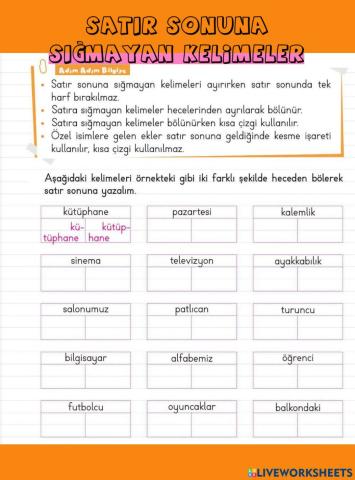 SATIR SONUNA
SIĞMAYAN KELİMELER
Adım Adım Bilgize
• Satır sonuna sığmayan kelimeleri ayırırken satır sonunda tek
harf bırakılmaz.
• Satıra sığmayan kelimeler hecelerinden ayrılarak bölünür.
• Satıra sığmayan kelimeler bölünürken kısa çizgi kullanılır.
• Özel isimlere gelen ekler satır sonuna geldiğinde kesme işareti
kullanılır, kısa çizgi kullanılmaz.
Aşağıdaki kelimeleri örnekteki gibi iki farklı şekilde heceden bölerek
satır sonuna yazalım.
kütüphane pazartesi kalemlik
kü- kütüp-
tüphane hane
sinema televizyon ayakkabılık
salonumuz patlıcan turuncu
bilgisayar alfabemiz öğrenci
futbolcu oyuncaklar balkondaki
LIVEWORKSHEETS